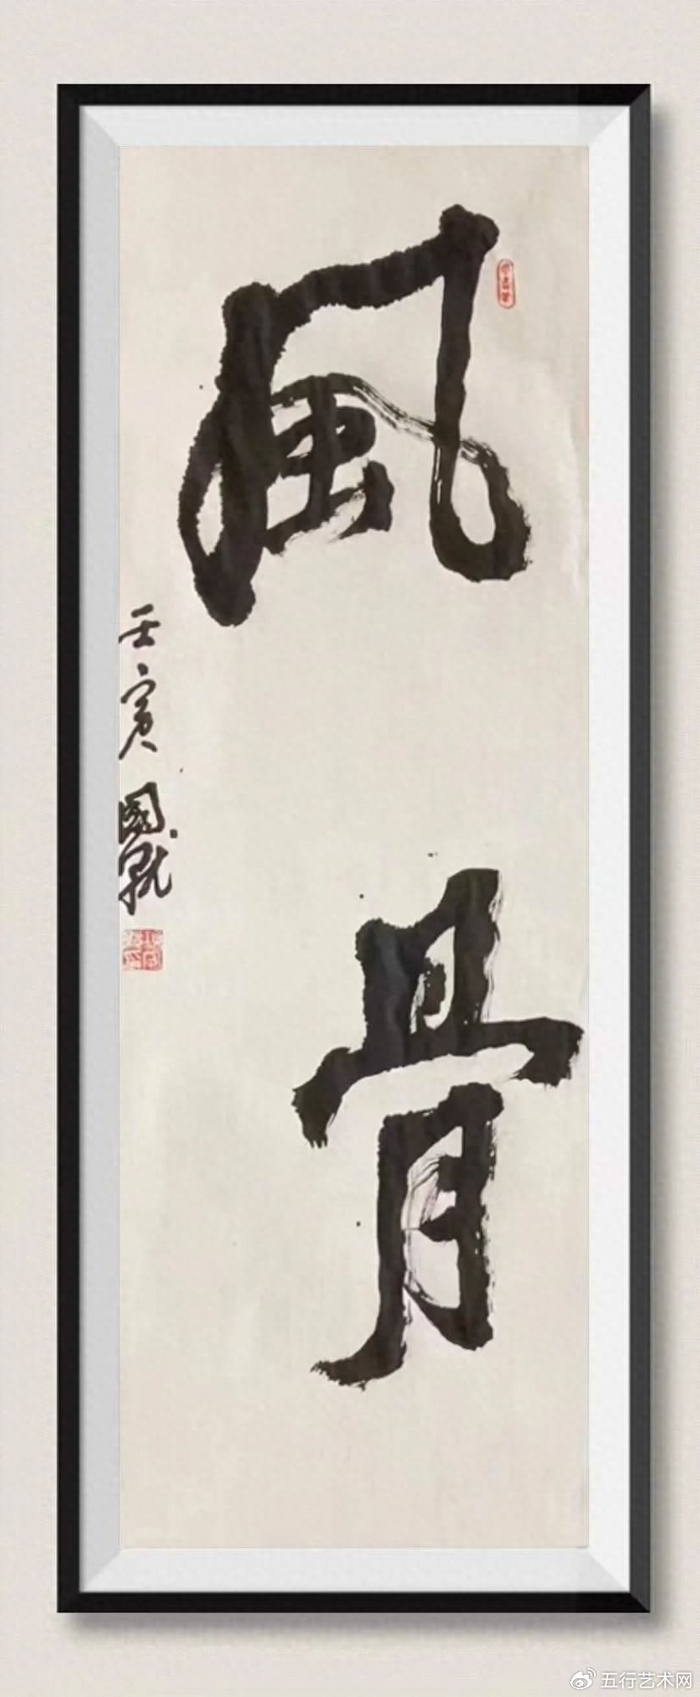 風骨
壬寅
國
五行艺术网